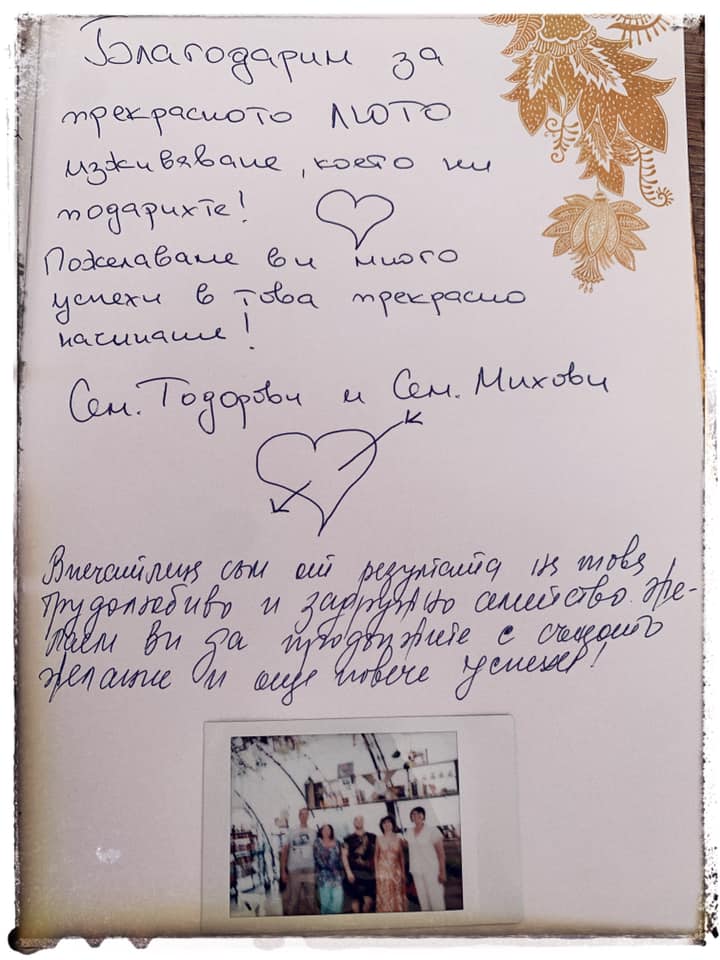 Благодарим за
прекрасното ЛЮТО
изживяване, което ни
подарихте!
Пожелаваме ви много
успехи в това прекрасно
начинание!
Сем. Тодорови и Сем. Михови
Впечатлена съм от резултата на това
трудолюбиво и задружно семейство. Же-
лаем ви да продължите с същото
желание и още повече успехи!